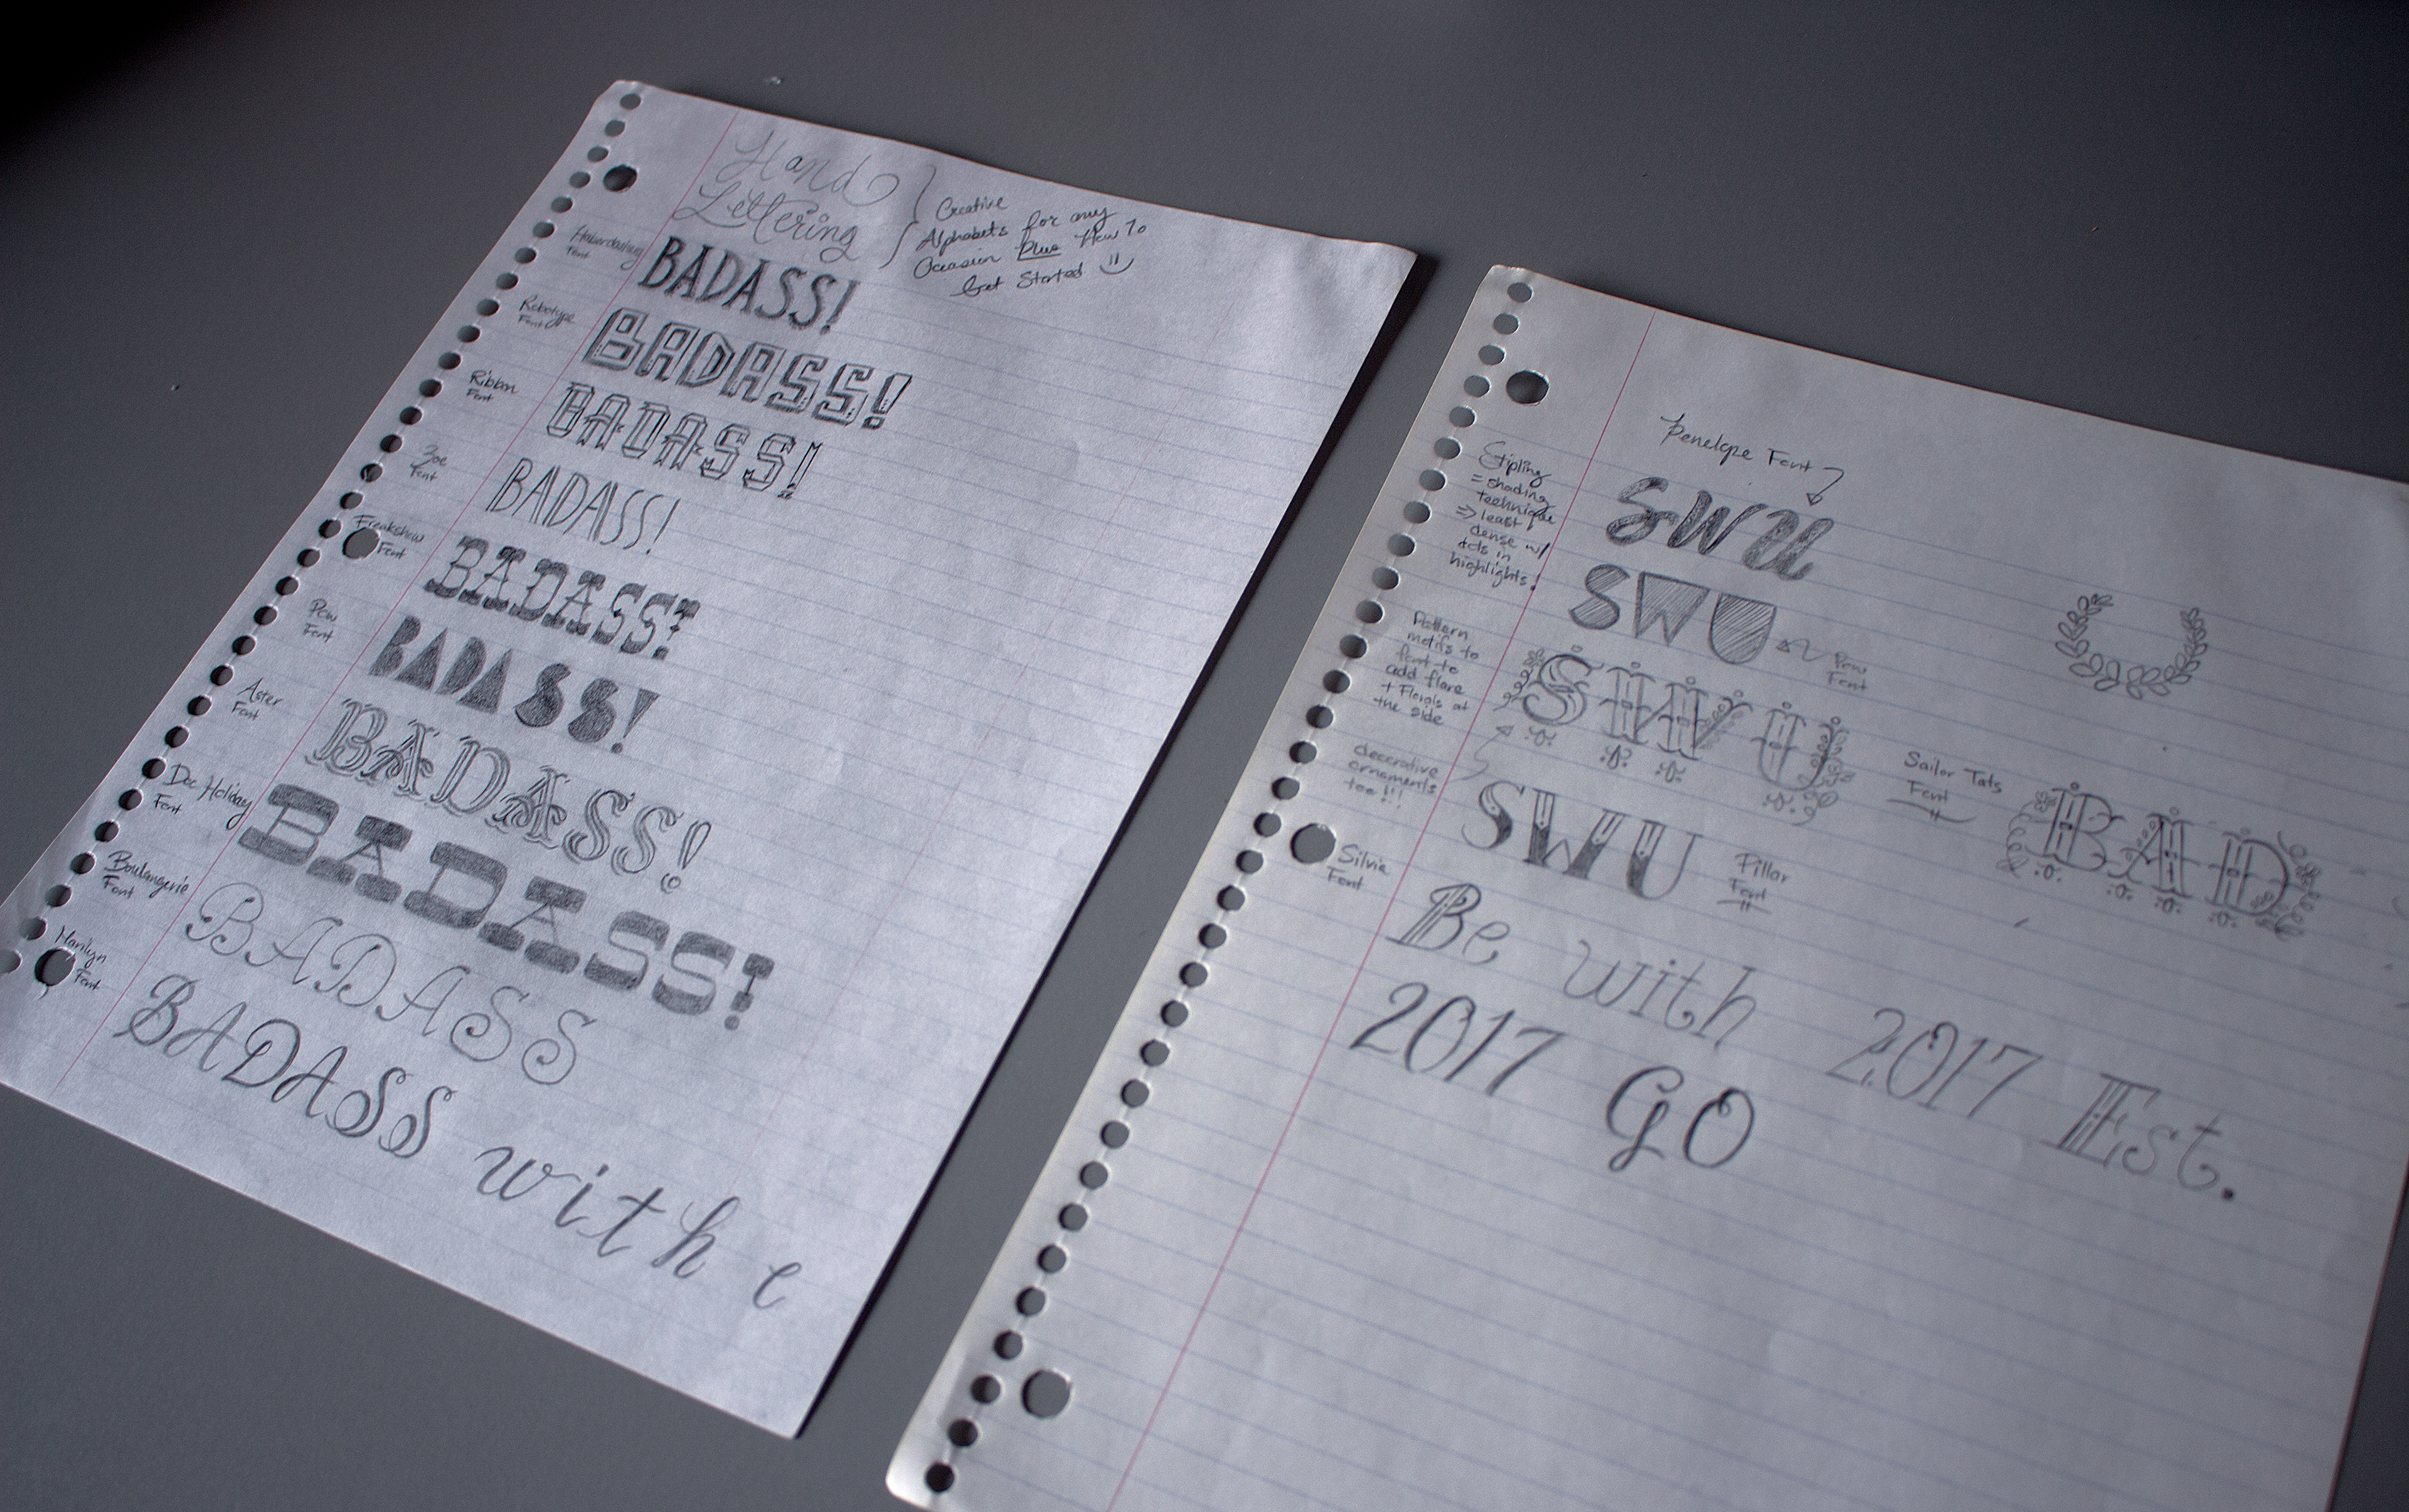 Hand
Lettering
Creative
Alphabets for any
Occasion Plus How To
Get Started
Haberdashery
Font
BADASS!
Robotype
Font
BADASS!
Ribbon
Font
BADASS!
Zoe
Font
BADASS!
Freakshow
Font
BADASS!
Pew
Font
BADASS!
Aster
Font
BADASS!
Doc Holiday
Font
BADASS!
Boulangerie
Font
BADASS
Marilyn
Font
BADASS with e
Penelope Font
Stipling
= shading
technique
=> least
dense w/
dots in
highlights!
SWU
SWU
Pew
Font
Pattern
motifs to
font to
add flare
+ Florals at
the side
SWU
Sailor Tats
Font
BAD
decorative
ornaments
too!!!
SWU
Pillar
Font
Silvia
Font
Be with 2017 Est.
2017 GO